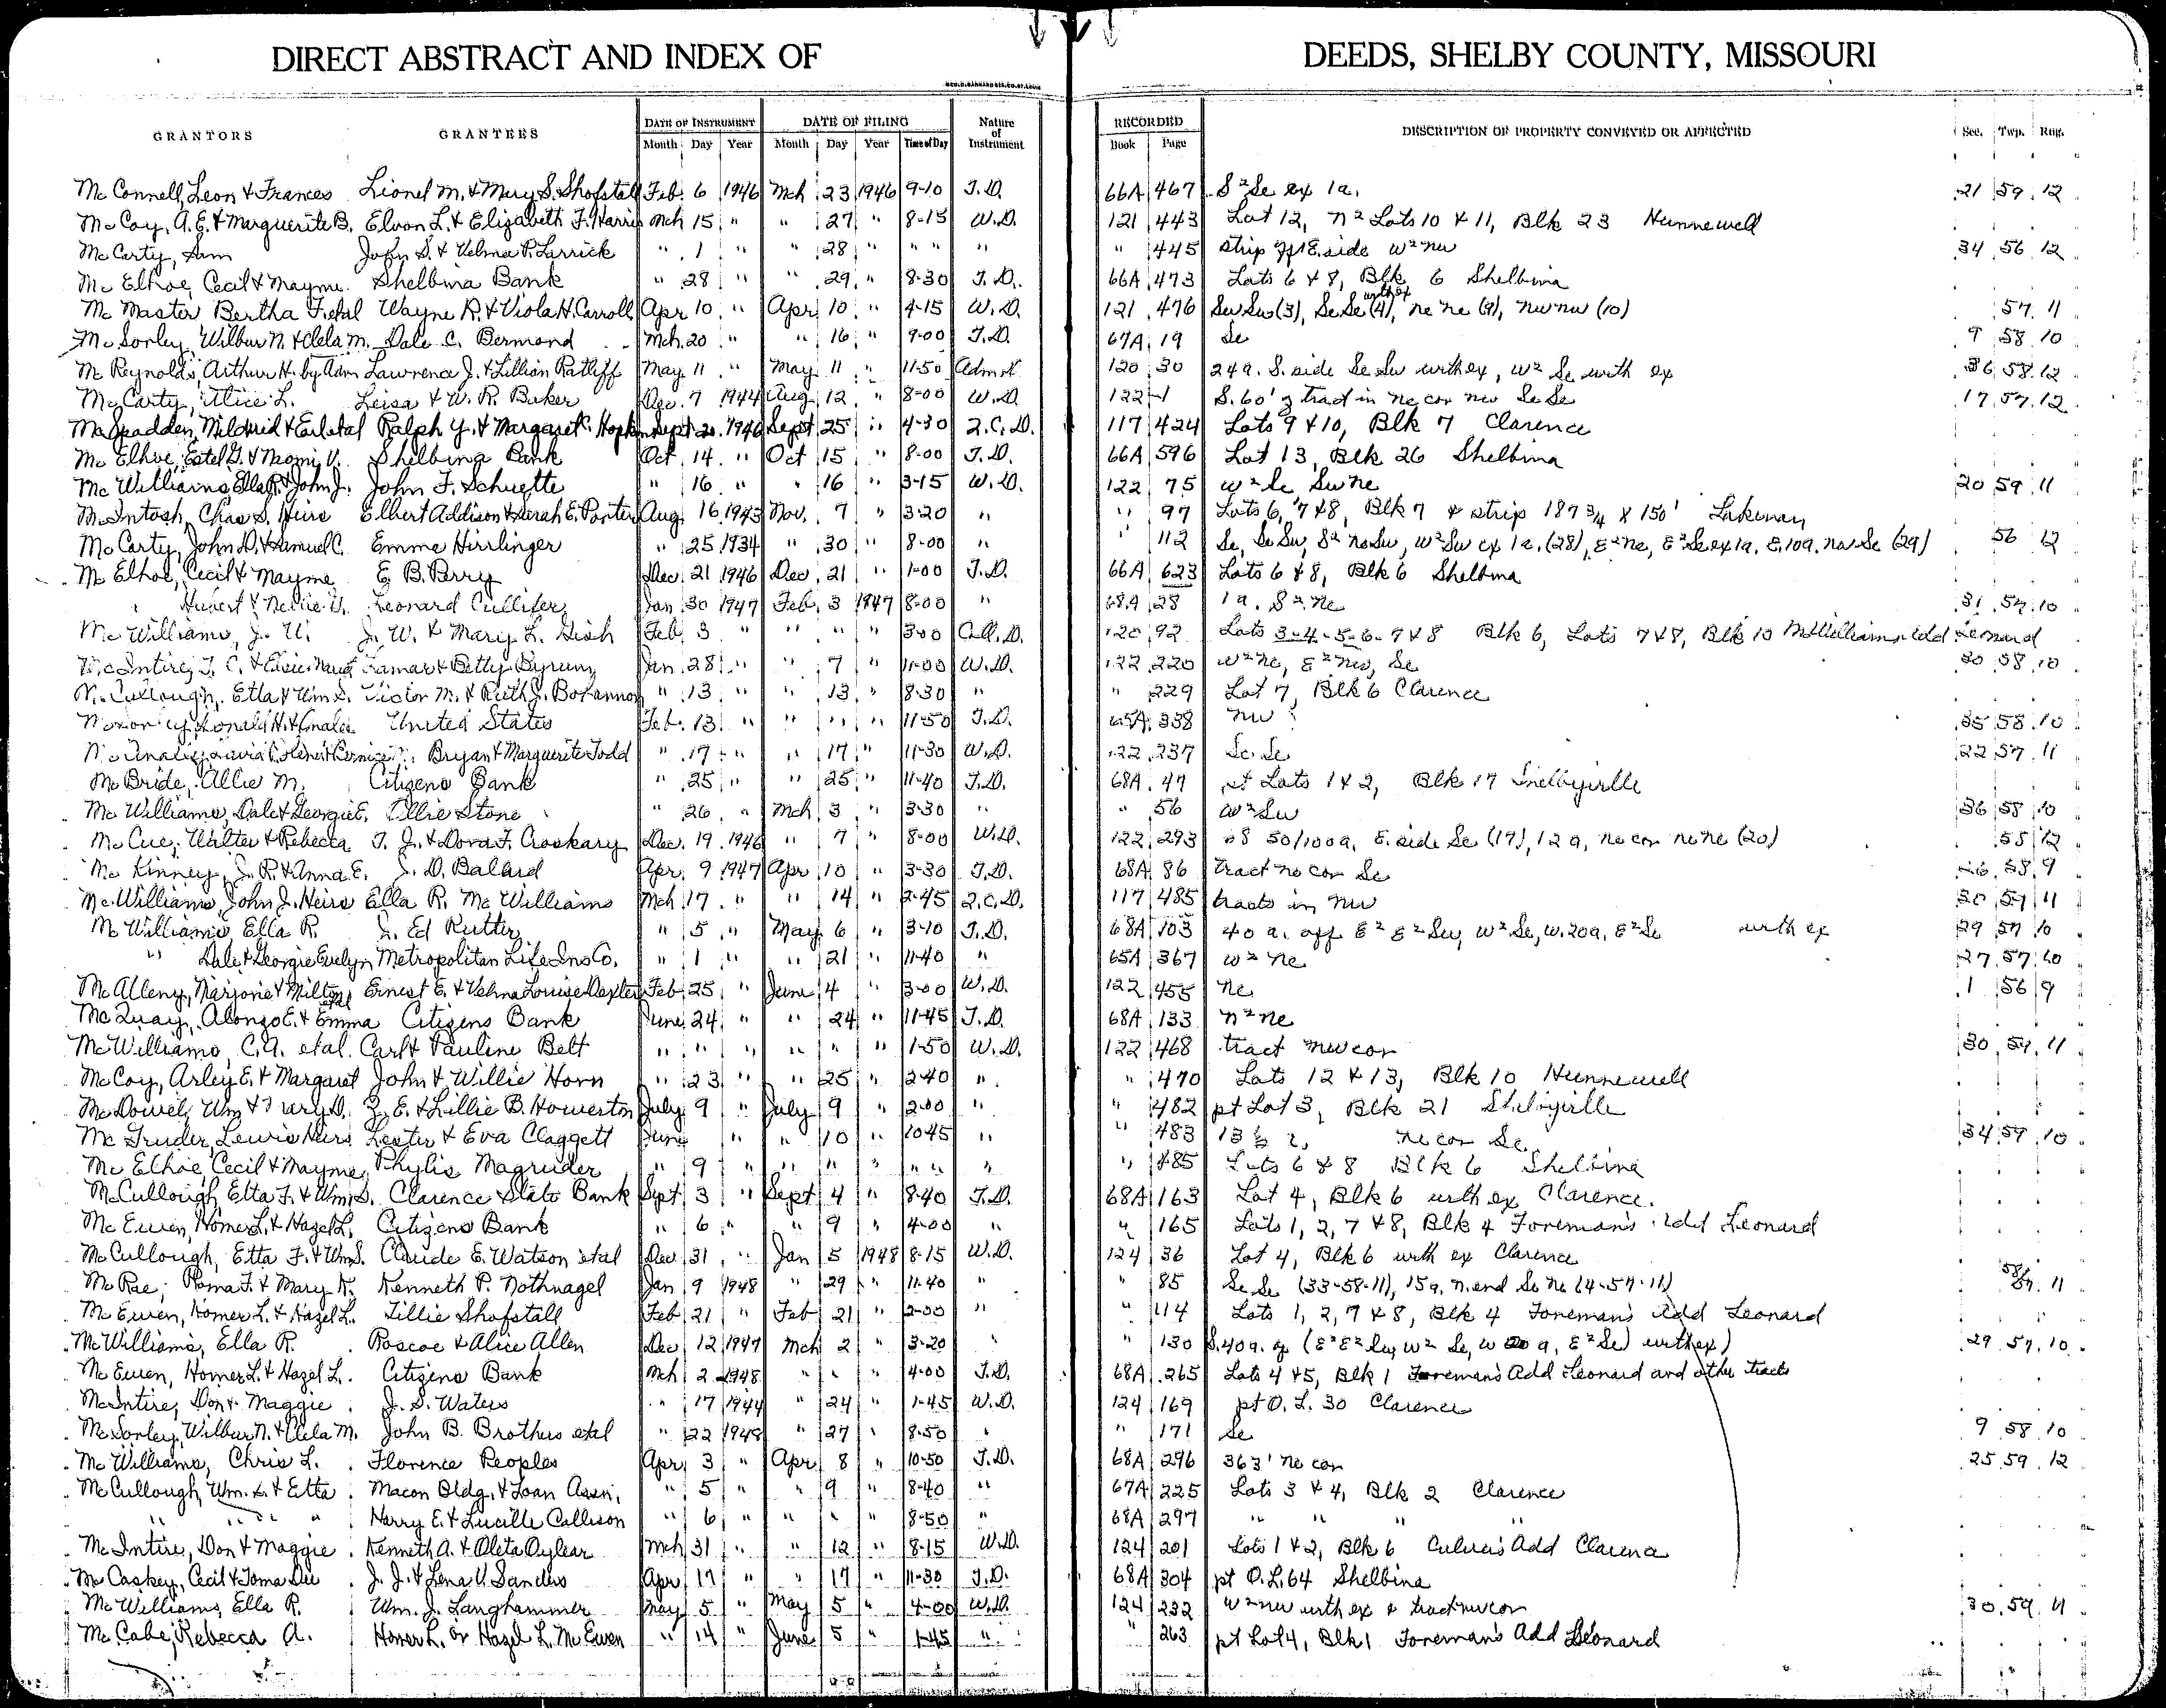 DIRECT ABSTRACT AND INDEX OF DEEDS, SHELBY COUNTY, MISSOURI
GRANTORS GRANTEES DATE OF INSTRUMENT DATE OF FILING Nature of Instrument RECORDED DESCRIPTION OF PROPERTY CONVEYED OR AFFECTED Sec. Twp. Rng.
Month Day Year Month Day Year Time of Day Book Page
McConnell, Leon & Frances Lionel M. & Mary S. Shofstall Feb. 6 1946 Mch 23 1946 9-10 T.D. 66A 467 S²Se ex 1a. 21 59 12
McCoy, A.E. & Marguerite B. Elvon L. & Elizabeth F. Harris Mch 15 " " 27 " 8-15 W.D. 121 443 Lot 12, N² Lots 10 & 11, Blk 23 Hunnewell
McCarty, Sam John S. & Velma P. Larrick " 1 " " 28 " " " " 445 strip off E side W²NW 34 56 12
McElhoe, Cecil & Mayme Shelbina Bank " 28 " " 29 " 8-30 T.D. 66A 473 Lots 6 & 8, Blk 6 Shelbina
McMaster Bertha F. etal Wayne R. & Viola H. Carroll Apr 10 " Apr 10 " 4-15 W.D. 121 476 SwSw(3), SeSe(4), with ex NeNe (9), NwNw (10) 57 11
McSorley, Wilbur N. & Clela M. Dale C. Bermond Mch. 20 " " 16 " 9-00 T.D. 67A 19 Se 9 58 10
McReynolds, Arthur H. by Adm Lawrence J. & Lillion Ratliff May 11 " May 11 " 11-50 Adm. D. 120 30 24a. S. side Se Sw with ex, W² Se with ex 36 58 12
McCarty, Alice L. Leisa & W.R. Baker Dec. 7 1944 Aug 12 " 8-00 W.D. 122 1 S. 60' of tract in Ne cor NW SeSe 17 57 12
McSpadden, Mildrid & Earl etal Ralph Y. & Margaret Hopkins Sept 20 1946 Sept 25 " 4-30 Q.C.D. 117 424 Lots 9 & 10, Blk 7 Clarence
McElhoe, Estel G. & Naomi V. Shelbina Bank Oct 14 " Oct 15 " 8-00 T.D. 66A 596 Lot 13, Blk 26 Shelbina
McWilliams Ella R. & John J. John F. Schuette " 16 " " 16 " 3-15 W.D. 122 75 W²Se SwNe 20 59 11
McIntosh, Chas S. Heirs Elbert Addison & Sarah E. Porter Aug 16 1943 Nov. 7 " 3-20 " " 97 Lots 6, 7 & 8, Blk 7 & strip 187¾ x 150' Lakenan
McCarty, John D. & Samuel C. Emma Hirrlinger " 25 1934 " 30 " 8-00 " " 112 Se, SeSw, S² NeSw, W²Sw ex 1a. (28), E²Ne, E²Se ex 1a. E.10a. NwSe (29) 56 12
McElhoe, Cecil & Mayme E. B. Perry Dec. 21 1946 Dec. 21 " 1-00 T.D. 66A 623 Lots 6 & 8, Blk 6 Shelbina
" Hubert & Nellie V. Leonard Cullifer Jan. 30 1947 Feb. 3 1947 8-00 " 68A 28 1a. S²Ne 31 57 10
McWilliams, J. U. J. W. & Mary L. Gish Feb. 3 " " " " 3-00 Coll.D. 120 92 Lots 3-4-5-6-7 & 8 Blk 6, Lots 7 & 8, Blk 10 McWilliams Add Leonard
McIntire, T. C. & Elsie Maud Lamar & Betty Byrum Jan. 28 " " 7 " 11-00 W.D. 122 220 W²Ne, E²Nw, Se 30 58 10
McCullough, Etta & Wm S. Victor M. & Ruth J. Bohannon " 13 " " 13 " 8-30 " " 229 Lot 7, Blk 6 Clarence
United States Feb. 13 " " " " 11-50 T.D. 65A 338 NW 35 58 10
Bryan & Marguerite Todd " 17 " " 17 " 11-30 W.D. 122 237 Se Se 22 57 11
McBride, Allie M. Citizens Bank " 25 " " 25 " 11-40 T.D. 68A 47 pt Lots 1 & 2, Blk 17 Shelbyville
McWilliams, Dale & Georgie E. Ollie Stone " 26 " Mch 3 " 3-30 " " 56 W²Sw 36 58 10
McCue, Walter & Rebecca T. J. & Dora F. Croskary Dec. 19 1946 " 7 " 8-00 W.D. 122 293 50/100a, E. side Se (17), 12a, Ne cor NeNe (20) 55 12
McKinney, J. R. & Anna E. J. D. Ballard Apr. 9 1947 Apr 10 " 3-30 T.D. 68A 86 tract Ne cor Se 26 58 9
McWilliams, John J. Heirs Ella R. McWilliams Mch 17 " " 14 " 2-45 Q.C.D. 117 485 tracts in NW 30 59 11
McWilliams Ella R. J. Ed Rutter " 5 " May 6 " 3-10 T.D. 68A 103 40 a. off E² E² Sw, W² Se, W. 20a. E²Se with ex 29 57 10
" Dale & Georgie Evelyn Metropolitan Life Ins Co. " 1 " " 21 " 11-40 " 65A 367 W² Ne 27 57 10
McAlleny, Marjorie & Milton etal Ernest E. & Velma Louise Dexter Feb. 25 " June 4 " 3-00 W.D. 122 455 Ne 1 56 9
McQuay, Alonzo E. & Emma Citizens Bank June 24 " " 24 " 11-45 T.D. 68A 133 N²Ne
McWilliams C.A. etal. Carl & Pauline Belt " " " " " " 1-50 W.D. 122 468 tract NW cor 30 59 11
McCoy, Arley E. & Margaret John & Willie Horn " 23 " " 25 " 2-40 " " 470 Lots 12 & 13, Blk 10 Hunnewell
McDowell, Wm & Mary D. Z. E. & Lillie B. Howerton July 9 " July 9 " 2-00 " " 482 pt Lot 3, Blk 21 Shelbyville
McGruder, Lewis Heirs Lester & Eva Claggett June " " 10 " 10-45 " " 483 13½ a. Ne cor Se 34 57 10
McElhoe, Cecil & Mayme Phylis Magruder " 9 " " " " " " " 485 Lots 6 & 8 Blk 6 Shelbina
McCullough, Etta F. & Wm S. Clarence State Bank Sept 3 " Sept 4 " 8-40 T.D. 68A 163 Lot 4, Blk 6 with ex Clarence.
McEwen, Homer L. & Hazel L. Citizens Bank " 6 " " 9 " 4-00 " " 165 Lots 1, 2, 7 & 8, Blk 4 Foreman's Add Leonard
McCullough, Etta F. & Wm S. Claude E. Watson etal Dec 31 " Jan 5 1948 8-15 W.D. 124 36 Lot 4, Blk 6 with ex Clarence
McRae, Roma F. & Mary K. Kenneth P. Nothnagel Jan 9 1948 " 29 " 11-40 " " 85 Se Se (33-58-11), 15a. N. end Se Ne (4-57-11) 58/57 11
McEwen, Homer L. & Hazel L. Lillie Shofstall Feb 21 " Feb 21 " 2-00 " " 114 Lots 1, 2, 7 & 8, Blk 4 Foreman's Add Leonard
McWilliams, Ella R. Roscoe & Alice Allen Dec 12 1947 Mch 2 " 3-20 " " 130 S. 40a. of (E²E² Sw, W² Se, W 20 a, E²Se) with ex 29 57 10
McEwen, Homer L. & Hazel L. Citizens Bank Mch 2 1948 " " " 4-00 T.D. 68A 265 Lots 4 & 5, Blk 1 Foreman's Add Leonard and other tracts
McIntire, Don & Maggie J. S. Waters " 17 1944 " 24 " 1-45 W.D. 124 169 pt O. L. 30 Clarence
McSorley, Wilbur N. & Clela M. John B. Brothers etal " 22 1948 " 27 " 8-50 " " 171 Se 9 58 10
McWilliams, Chris L. Florence Peoples Apr 3 " Apr 8 " 10-50 T.D. 68A 296 363' Ne cor 25 59 12
McCullough, Wm. S. & Etta Macon Bldg. & Loan Assn. " 5 " " 9 " 8-40 " 67A 225 Lots 3 & 4, Blk 2 Clarence
" " " Harry E. & Lucille Callison " 6 " " " " 8-50 " 68A 297 " " " "
McIntire, Don & Maggie Kenneth A. & Oleta Aylear Mch 31 " " 12 " 8-15 W.D. 124 201 Lots 1 & 2, Blk 6 Culver's Add Clarence
McCaskey, Cecil & Toma Dee J. J. & Lena V. Sanders Apr 17 " " 17 " 11-30 T.D. 68A 304 pt O.L. 64 Shelbina
McWilliams, Ella R. Wm. J. Langhammer May 5 " May 5 " 4-00 W.D. 124 232 W²NW with ex & tract NW cor 30 59 11
McCabe, Rebecca A. Homer L. or Hazel L. McEwen " 14 " June 5 " 1-45 " " 263 pt Lot 4, Blk 1 Foreman's Add Leonard